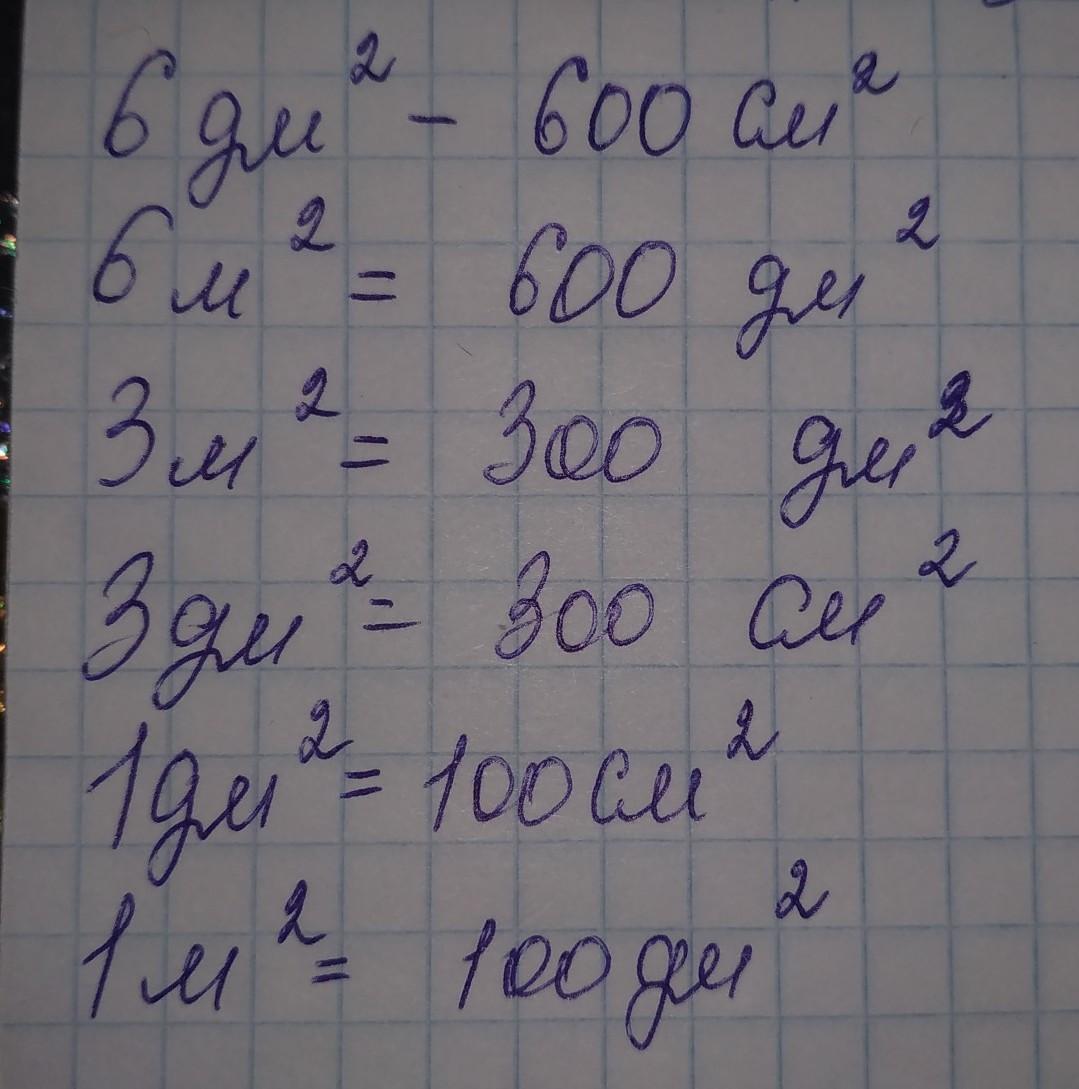 6 дм² - 600 см²
6 м² = 600 дм²
3 м² = 300 дм²
3 дм² = 300 см²
1 дм² = 100 см²
1 м² = 100 дм²